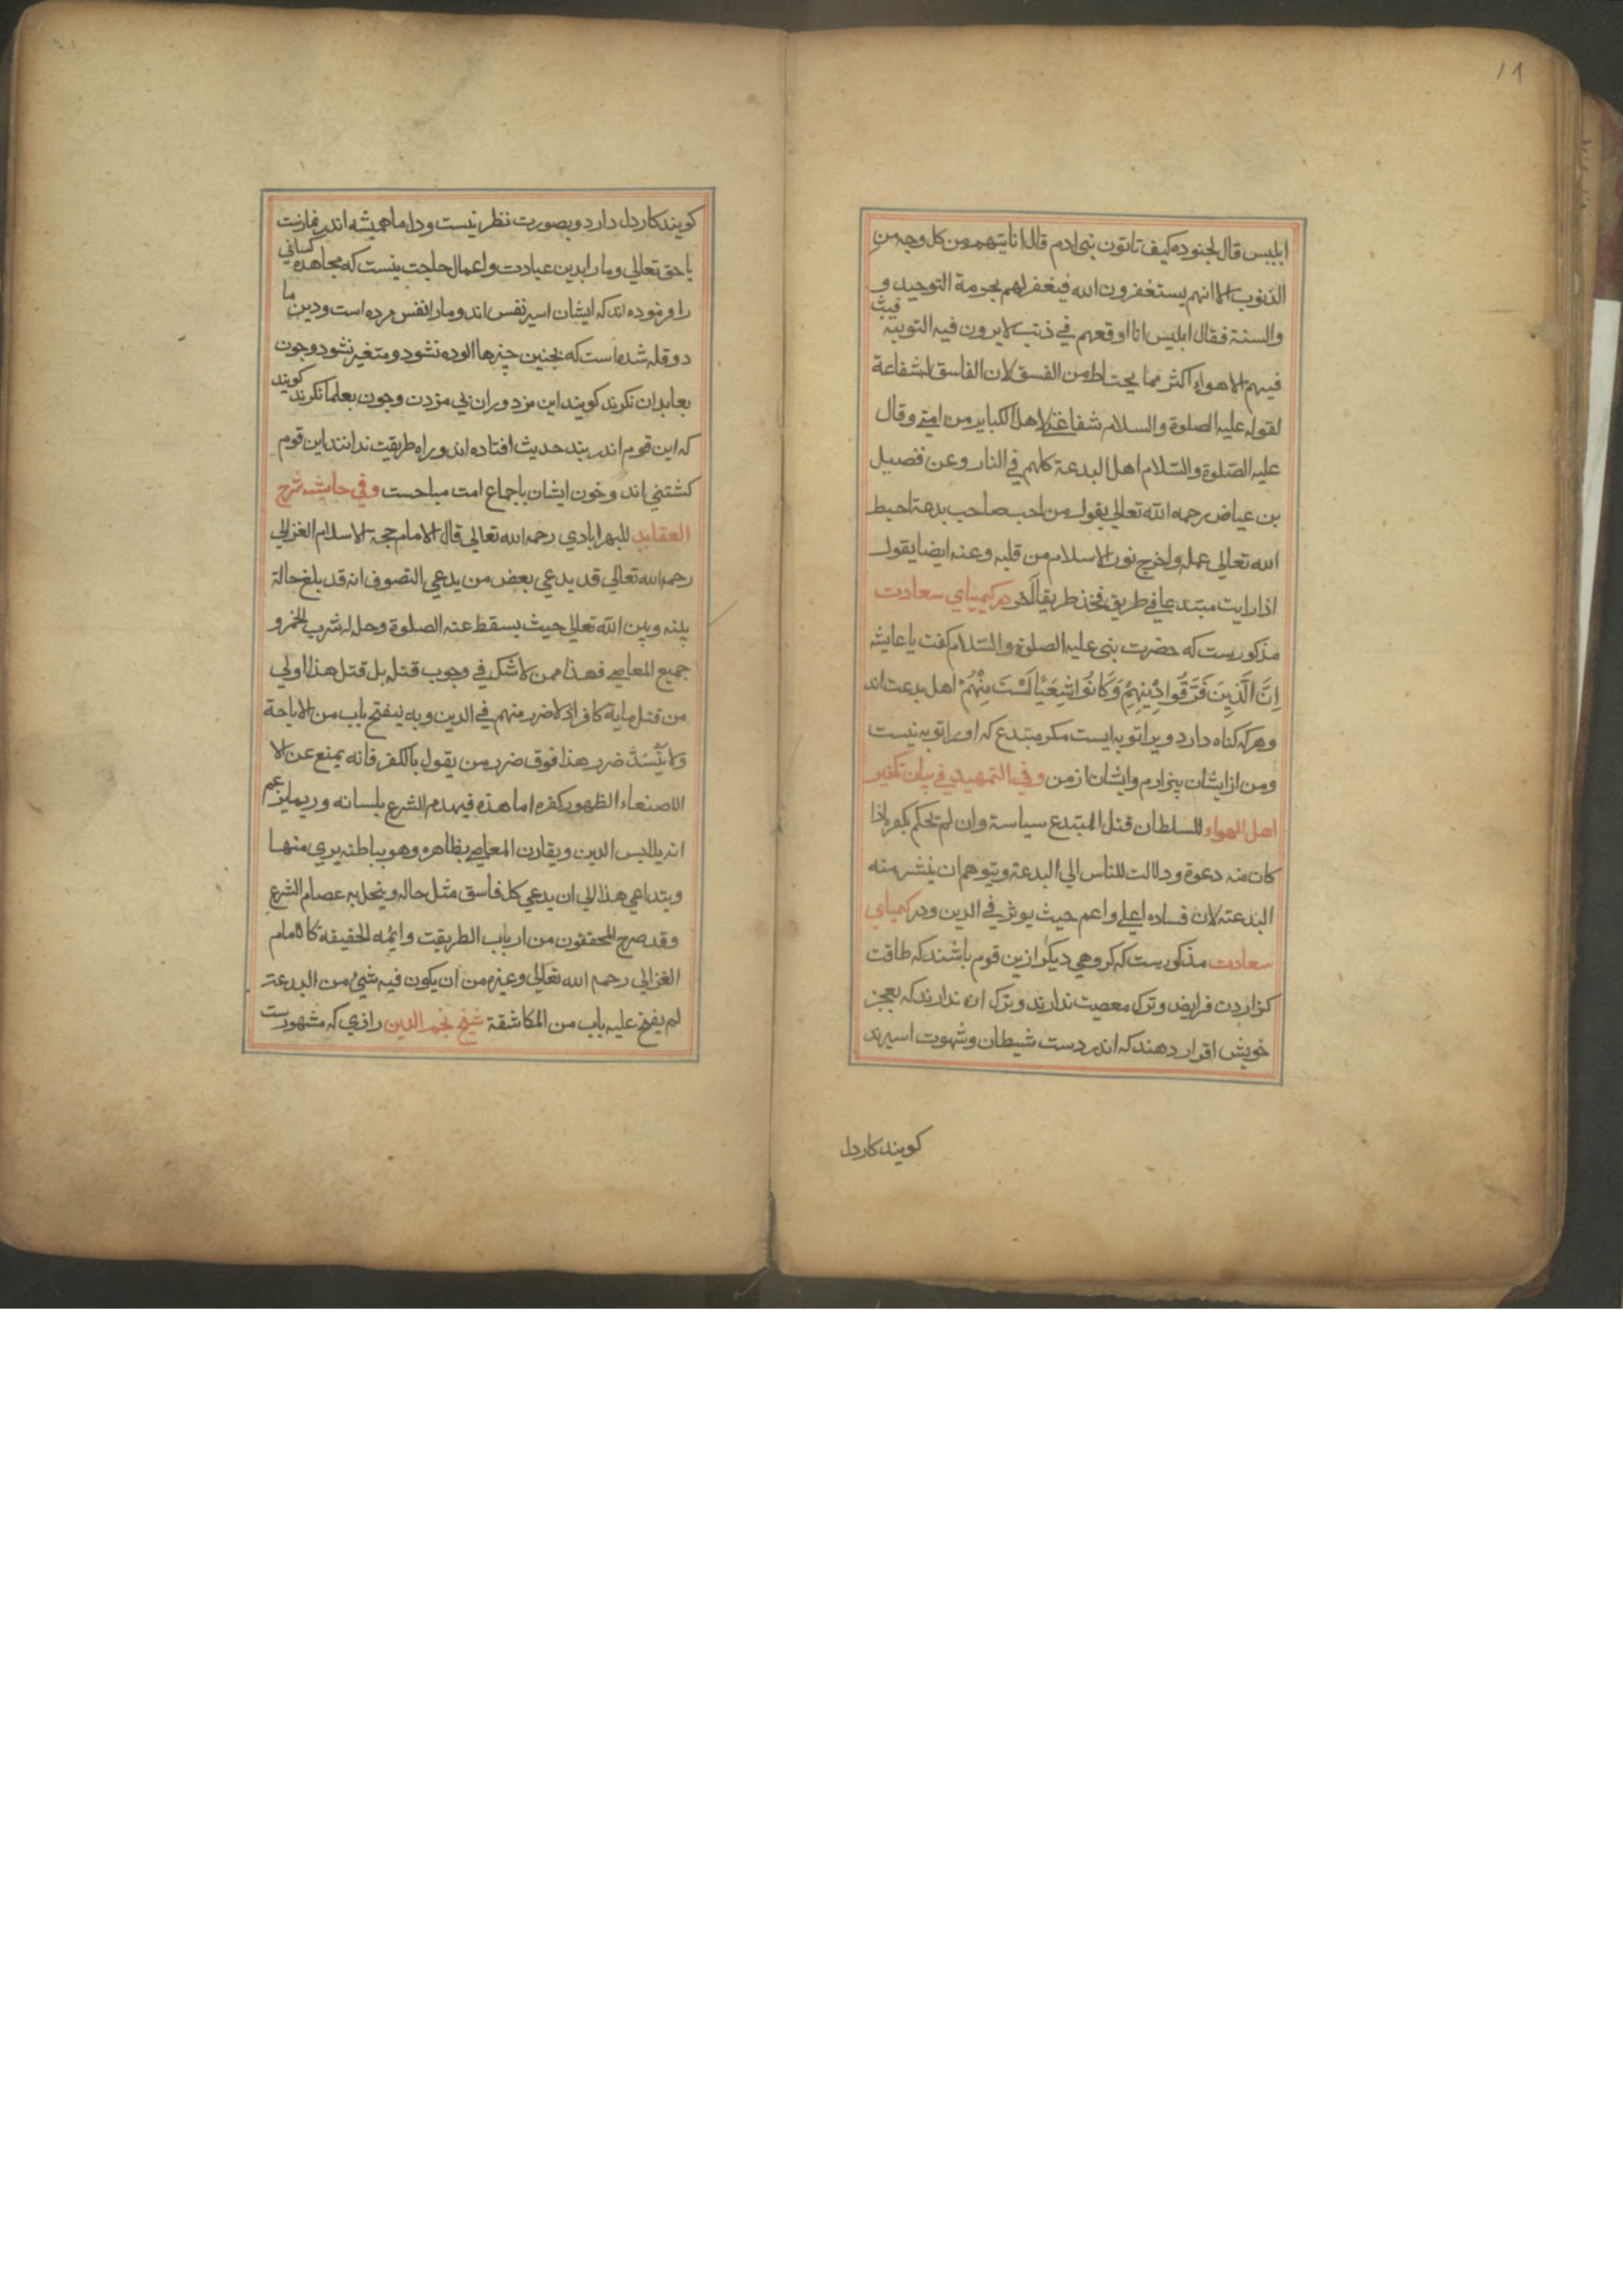 ١٩
ابلیس قال لجنوده کیف تاتون بنی ادم قال انا نیتهم من کل وجه من
الذنوب الا انهم یستغفرون الله فیغفر لهم بحرمة التوحید و
والسنة فقال ابلیس انا اوقعهم فی ذنب لا یرون فیه التوبیه فیبث
فیهم الاهواء اکثر مما یحتاط من الفسق لان الفاسق لشفاعة
لقوله علیه الصلوة والسلام شفاعتی لاهل الکبایر من امتی وقال
علیه الصلوة والسلام اهل البدعة کلهم فی النار وعن فضیل
بن عیاض رحمه الله تعالی یقول من احب صاحب بدعة احبط
الله تعالی عمله واخرج نور الاسلام من قلبه وعنه ایضا یقول
اذا رایت مبتدعا فی طریق فخذ طریقا آخر در کیمیای سعادت
مذکورست که حضرت نبی علیه الصلوة والسلام کفت یا عایشه
اِنَّ الَّذِینَ فَرَّقُوا دِیْنِهِمْ وَکَانُوا شِیَعًا لَسْتَ مِنْهُمْ اهل بدعت اند
وهرکه کناه دارد ویرا توبه ایست مکر مبتدع که اورا توبه نیست
ومن از ایشان بیزارم وایشان از من وفی التمهید فی بیان تکفیر
اهل الهواء للسلطان قتل المبتدع سیاسة وان لم تحکم بکفره اذا
کان منه دعوة ودلالت للناس الی البدعة ویتوهم ان ینشر منه
البدعته لان فساده اعلی واعم حیث یوثر فی الدین ودر کیمیای
سعادت مذکورست که کروهی دیکر ازین قوم باشند که طاقت
کزاردن فرایض وترک معصیت ندارند وترک ان ندارند که بعجز
خویش اقرار دهند که اندر دست شیطان وشهوت اسیرند
کویند کار دل
کویند کار دل دارد وبصورت نظر نیست ودل ما همیشه اندر نمازست
با حق تعالی وما را بدین عبادت واعمال حاجت نیست که مجاهده کسانی
را فرموده اند که ایشان اسیر نفس اند وما را نفس مرده است ودین ما
دو قله شده است که بچنین چیزها الوده نشود ومتغیر نشود وچون
بعابدان نکرند کویند این مزدوران بی مزدن وچون بعلما نکرند کویند
که این قوم اندر بند حدیث افتاده اند وراه طریقت ندانند این قوم
کشتنی اند وخون ایشان باجماع امت مباحست وفی حاشیه شرح
العقاید للبهرابادی رحمه الله تعالی قال الامام حجة الاسلام الغزالی
رحمه الله تعالی قد یدعی بعض من یدعی التصوف انه قد بلغ حالة
بینه وبین الله تعالی حیث یسقط عنه الصلوة وحل له شرب الخمر و
جمیع المعاصی فهذا ممن لا شک فی وجوب قتله بل قتل هذا اولی
من قتل مایة کافر اذ لا ضرر منهم فی الدین وبه ینفتح باب من الاباحة
ولا ینسد ضرر هذا فوق ضرر من یقول بالکفر فانه یمنع عن الا
الاصغاء الظهور کفره اما هذه فیهدم الشرع بلسانه وربما یزعم
انه یلابس الدین ویقارن المعاصی بظاهره وهو بباطنه بری منها
ویتداعی هذا الی ان یدعی کل فاسق مثل حاله وینحل به عصام الشرع
وقد صرح المحققون من ارباب الطریقت وایمه الحقیقة کالامام
الغزالی رحمه الله تعالی وغیره من ان یکون فیه شیٔ من البدعة
لم یفتح علیه باب من المکاشفة شیخ نجم الدین رازی که مشهورست